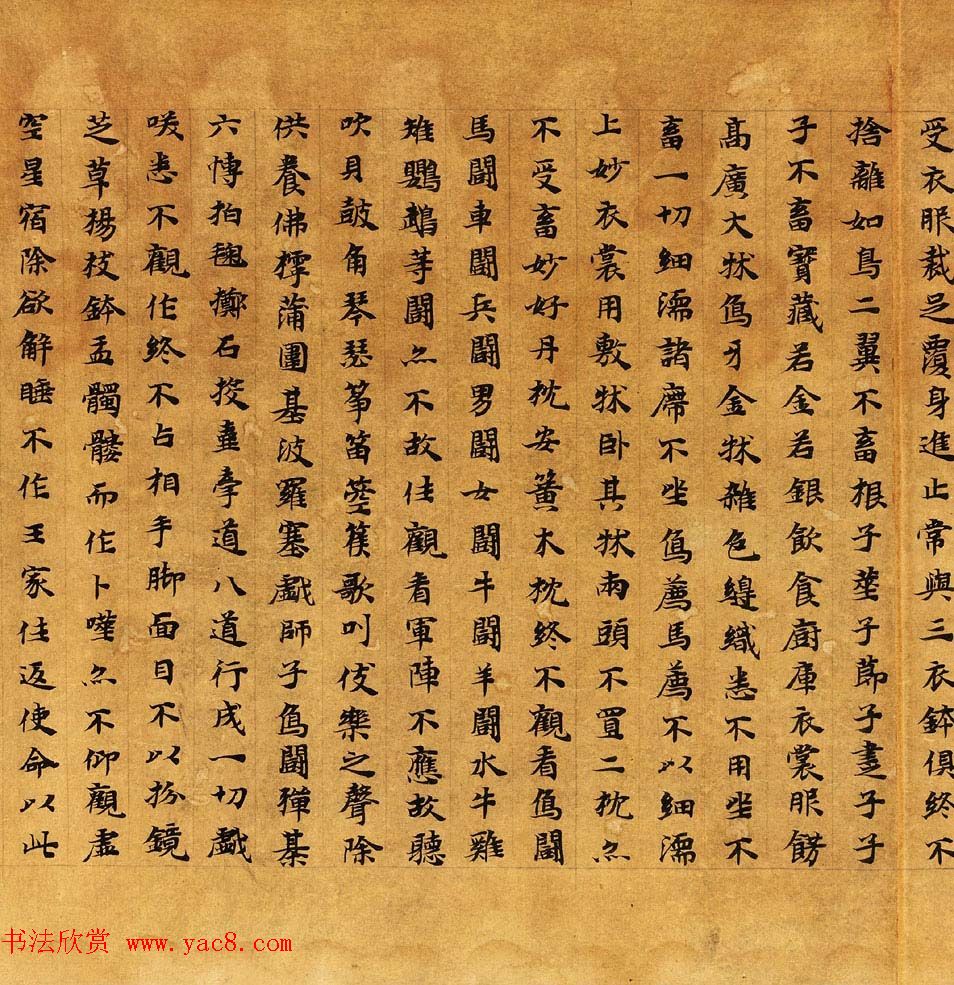 受衣服裁足覆身進止常與三衣鉢俱終不
捨離如鳥二翼不畜根子莖子節子疌子子
子不畜寶藏若金若銀飲食厨庫衣裳服餝
高廣大牀象牙金牀雜色編織悉不用坐不
畜一切細濡諸席不坐象薦馬薦不以細濡
上妙衣裳用敷牀卧其牀兩頭不置二枕亦
不受畜妙好丹枕安簧木枕終不觀看象鬪
馬鬪車鬪兵鬪男鬪女鬪牛鬪羊鬪水牛雞
雉鸚鵡等鬪亦不故往觀看軍陣不應故聽
吹貝鼓角琴瑟箏笛箜篌歌叫伎樂之聲除
供養佛摴蒲圍基波羅塞戲師子象鬪彈棊
六愽拍毱擲石投壺牽道八道行成一切戲
咲悉不觀作終不占相手脚面目不以抄鏡
芝草楊枝鉢盂髑髏而作卜筮亦不仰觀虛
空星宿除欲解睡不作王家往返使命以此
书法欣赏 www.yac8.com